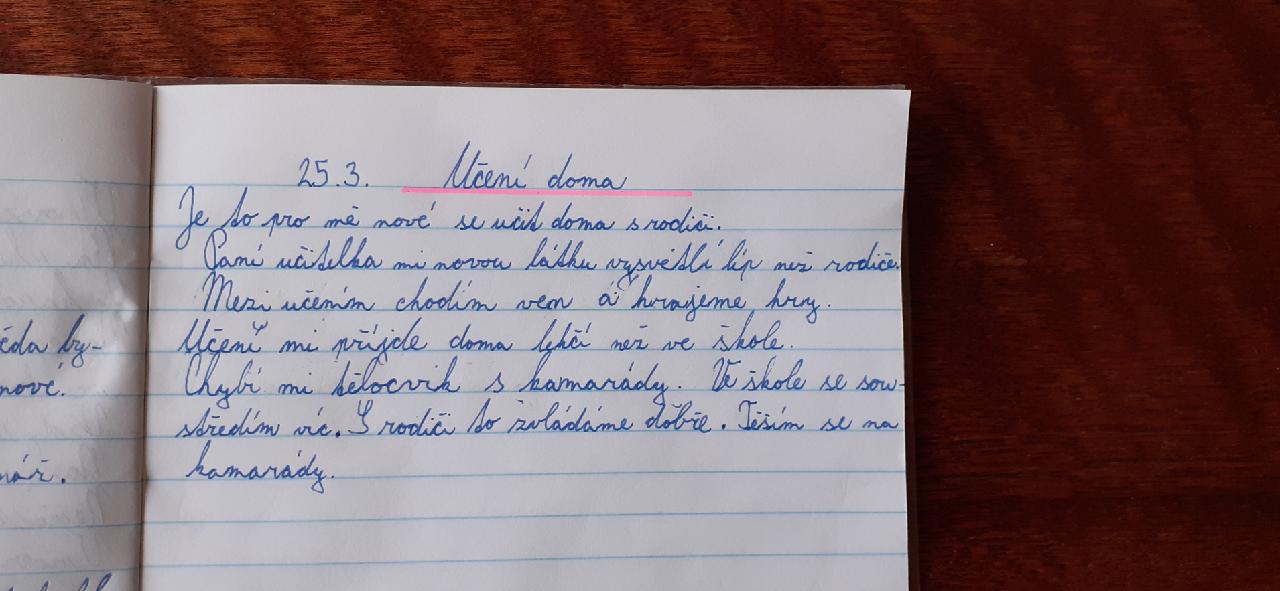 25.3. Učení doma
Je to pro mě nové se učit doma s rodiči.
Paní učitelka mi novou látku vysvětlí líp než rodiče.
Mezi učením chodím ven a hrajeme hry.
Učení mi příjde doma lehčí než ve škole.
Chybí mi tělocvik s kamarády. Ve škole se sou-
středím víc. S rodiči to zvládáme dobře. Těším se na
kamarády.
ěda by-
nové.